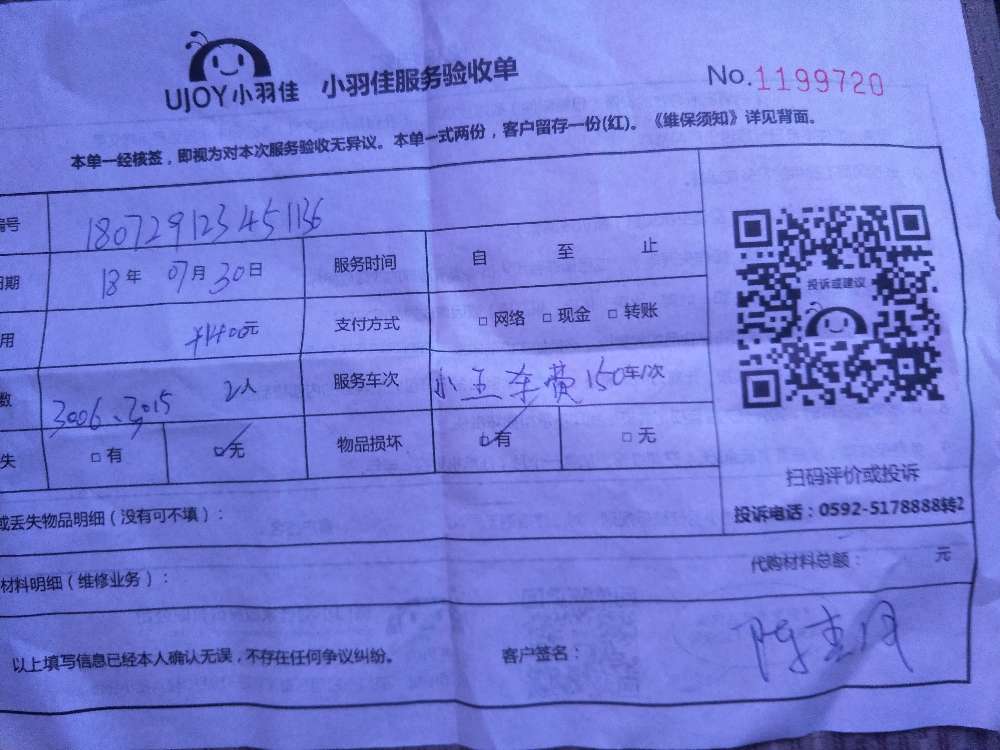 UJOY小羽佳 小羽佳服务验收单 No.1199720
本单一经核签，即视为对本次服务验收无异议。本单一式两份，客户留存一份(红)。《维保须知》详见背面。
编号 180729123451136
日期 18年 07月30日 服务时间 自 至 止
用 ¥1400元 支付方式 □网络 □现金 □转账
数 3006、3015 2人 服务车次 小五车费150车/次
失 □有 □无 物品损坏 □有 □无
投诉或建议
扫码评价或投诉
投诉电话：0592-5178888转2
或丢失物品明细（没有可不填）：
材料明细（维修业务）： 代购材料总额： 元
以上填写信息已经本人确认无误，不存在任何争议纠纷。 客户签名：